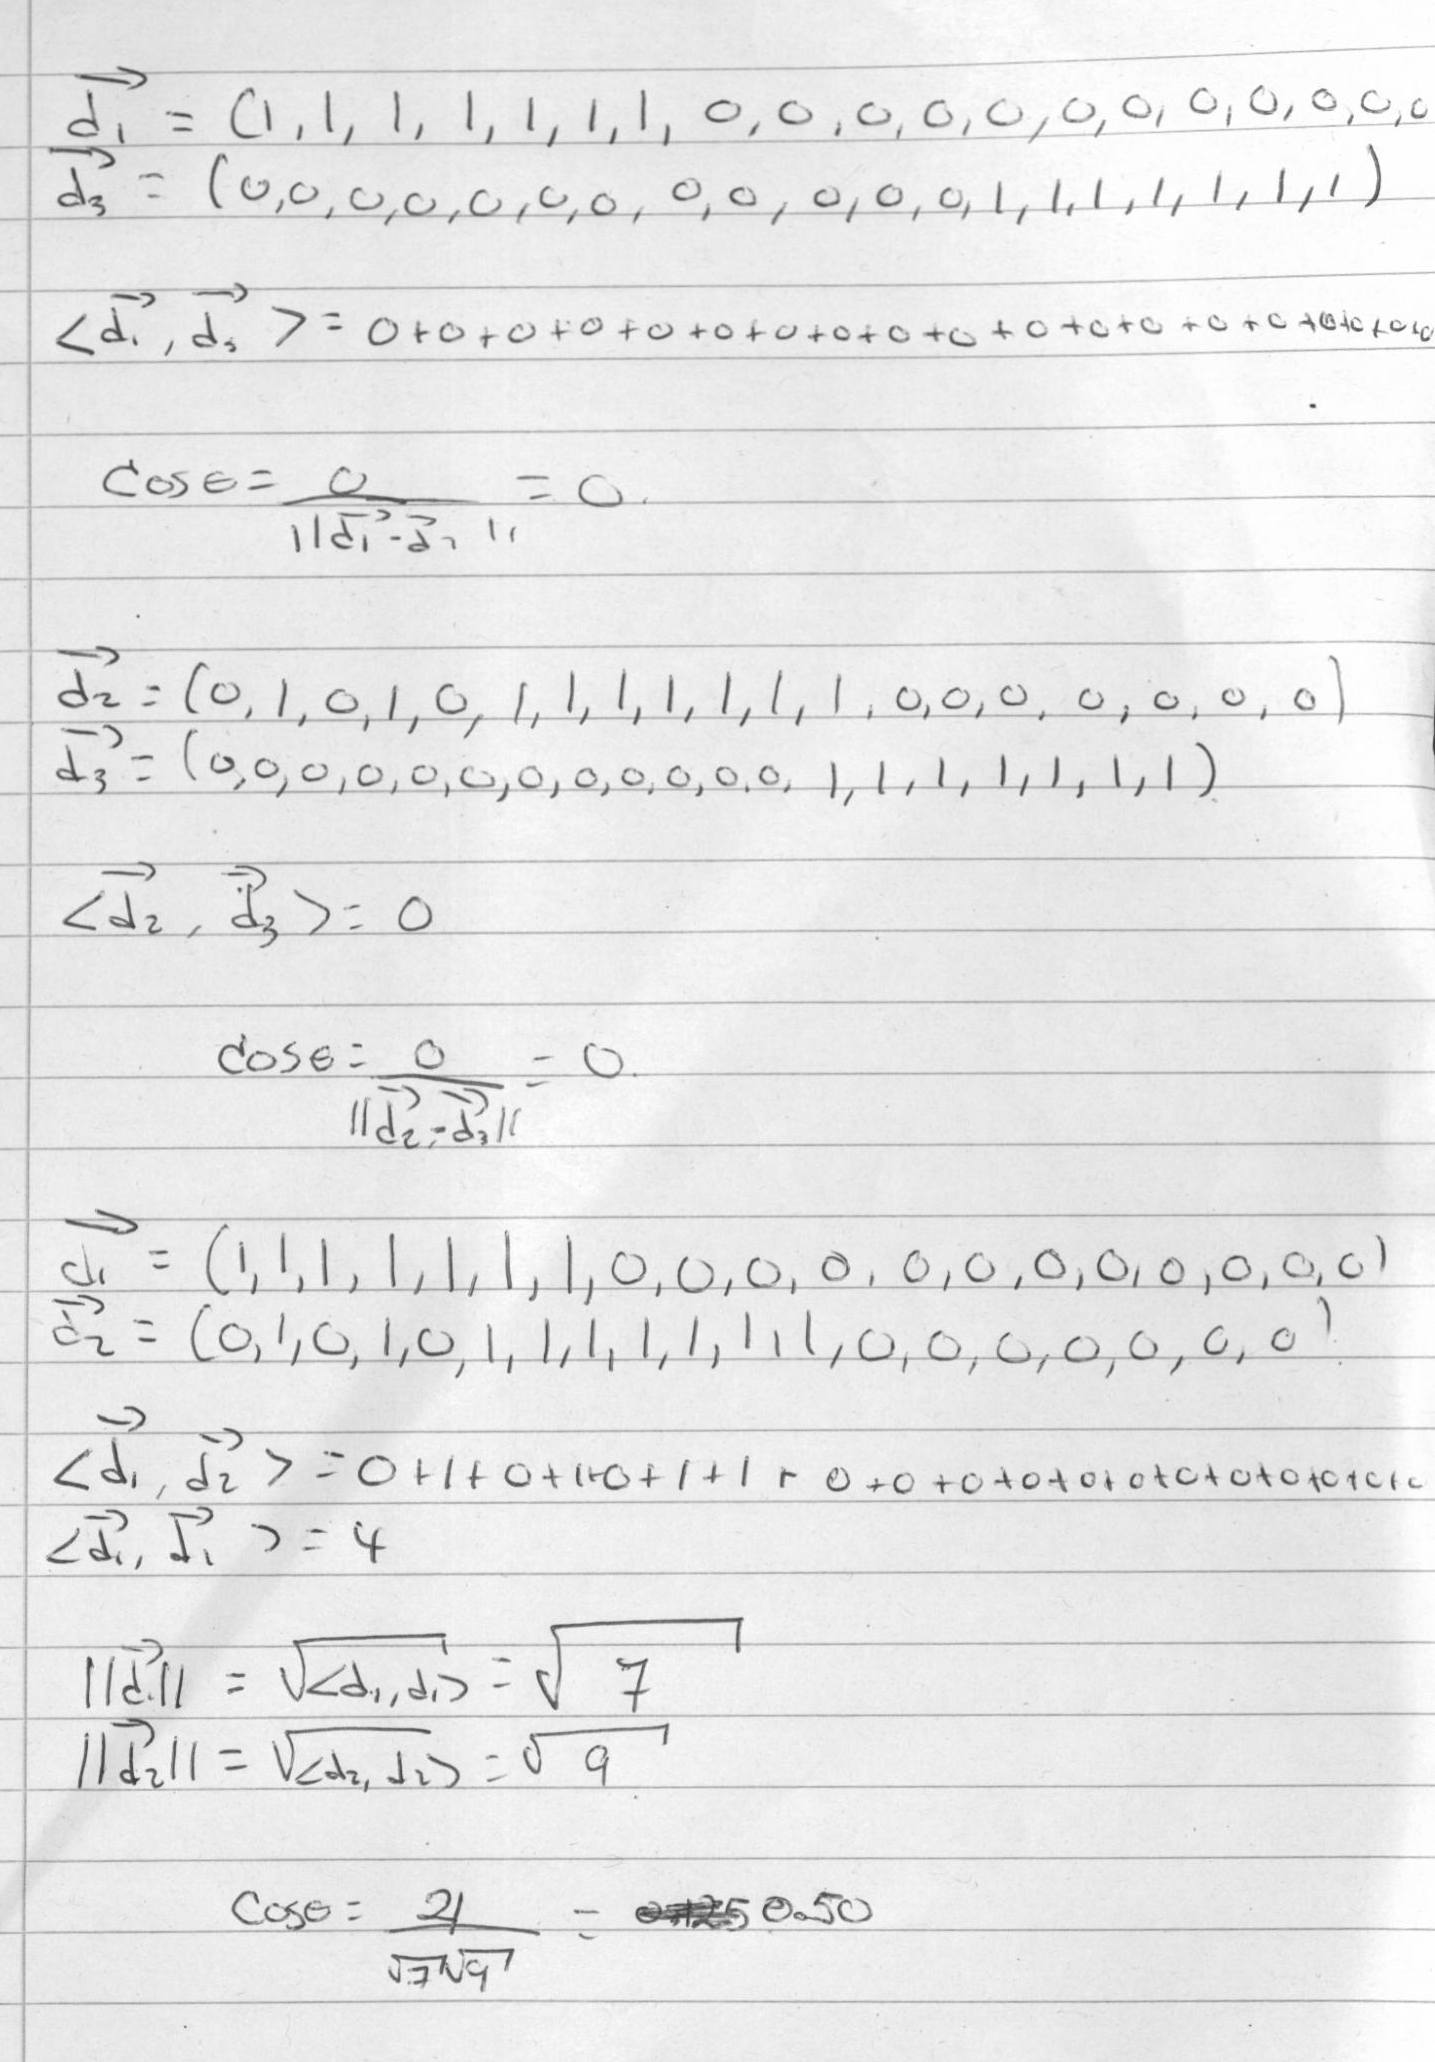 d₁ = (1, 1, 1, 1, 1, 1, 1, 0, 0, 0, 0, 0, 0, 0, 0, 0, 0, 0, 0
d₃ = (0, 0, 0, 0, 0, 0, 0, 0, 0, 0, 0, 0, 1, 1, 1, 1, 1, 1, 1)
<d₁, d₃> = 0+0+0+0+0+0+0+0+0+0+0+0+0+0+0+0+0+0+0
Cosθ = 0 / ||d₁-d₃|| = 0.
d₂ = (0, 1, 0, 1, 0, 1, 1, 1, 1, 1, 1, 1, 0, 0, 0, 0, 0, 0, 0)
d₃ = (0, 0, 0, 0, 0, 0, 0, 0, 0, 0, 0, 0, 1, 1, 1, 1, 1, 1, 1)
<d₂, d₃> = 0
Cosθ = 0 / ||d₂-d₃|| = 0.
d₁ = (1, 1, 1, 1, 1, 1, 1, 0, 0, 0, 0, 0, 0, 0, 0, 0, 0, 0, 0)
d₂ = (0, 1, 0, 1, 0, 1, 1, 1, 1, 1, 1, 1, 0, 0, 0, 0, 0, 0, 0)
<d₁, d₂> = 0+1+0+1+0+1+1+0+0+0+0+0+0+0+0+0+0+0+0
<d₁, d₁> = 4
||d₁|| = √<d₁, d₁> = √7
||d₂|| = √<d₂, d₂> = √9
Cosθ = 4 / √7√9 = 0.50